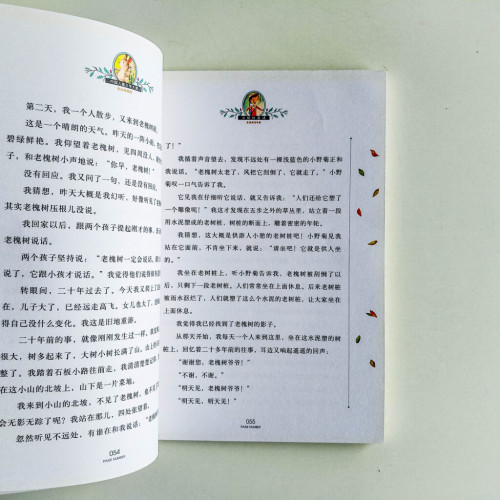 第二天，我一个人散步，又来到老槐树
这是一个晴朗的天气，昨天的一阵小雨
碧绿鲜艳。我仰望着老槐树，见四周没人
子，和老槐树小声地说：“你早，老槐树！”
没有回应。我又问了一句，还是没有回应。
我猜想，昨天大概是我幻听，好像听见了
其实老槐树压根儿没说。
我回家以后，跟两个孩子提起刚才的事，
老槐树说话。
两个孩子坚持说：“老槐树一定会说话，
说了，它跟小孩才说话。”我觉得他们说得
转眼间，二十年过去了，今天我又摘上了
在，儿子大了，已经远走高飞。女儿也大了，
得自己没什么变化。我这是旧地重游。
二十年前的事，就像刚刚发生过一样。我
很大，树多起来了，大树小树长满了山。
整了。我踏着石板小路往前走，我清清楚楚
在这小山的北坡上，山下是一片菜地。
我来到小山的北坡，不见了老槐树，
会无影无踪了呢？我站在那儿，四处张望着。
忽然听见不远处，有谁在和我说话：“老槐
054
PAGE NUMBER
了！”
我循着声音望去，发现不远处有一棵浅蓝色的小野菊正和
我说话：“老槐树太老了，风把它刮倒了，它就走了。”小野
菊叹一口气告诉了我。
它见我在仔细听它说话，就又告诉我：“人们还给它塑了
一个雕像呢！”我这才发现在五步之外的草丛里，站立着一段
用水泥塑成的老树桩，树桩的断面上，雕着密密的年轮。
我猜想，这大概是供游人小憩的老树桩吧！小野菊见我
站在它面前，不肯坐下来，就说：“请坐吧！它就是供人坐
的。”
我坐在老树桩上，听小野菊告诉我，老槐树被刮倒了以
后，只剩下一段老树桩。人们常常坐在上面休息。后来老树桩
被雨水沤烂了，人们就塑了这么个水泥的老树桩，让大家坐在
上面休息。
我觉得我已经找到了老槐树的影子。
从那天开始，我每天一个人来到这里，坐在这水泥塑的树
桩上，回忆着二十多年前的往事，耳边又响起遥遥的回声：
“谢谢您，老槐树爷爷！”
“不谢，不谢。”
“明天见，老槐树爷爷！”
“明天见，明天见！”
055
PAGE NUMBER